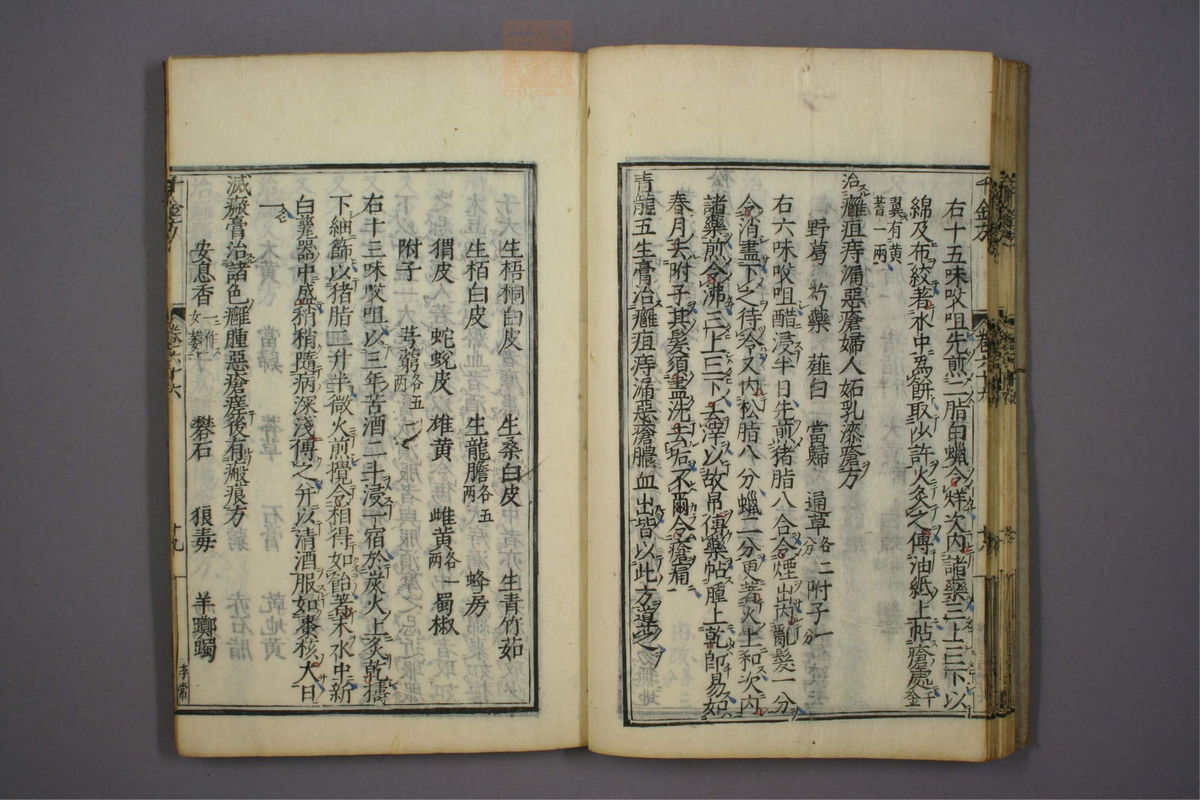 右十五味㕮咀先煎二脂白蠟令烊次內諸藥三上三下以
綿及布絞著水中為餅取少許火炙之傅油紙上帖瘡處千金
翼有黃蓍一兩
治癰疽痔漏惡瘡婦人妬乳漆瘡方
野葛 芍藥 薤白 當歸 通草各二分 附子一分
右六味㕮咀醋浸半日先煎猪脂八合令煙出內亂髮一分
令消盡下之待冷又內松脂八分蠟二分更著火上和次內
諸藥煎令沸三上三下去滓以故帛傅藥帖腫上乾即易如
春月去附子其髮須盡洗去垢不爾令瘡痛
青龍五生膏治癰疽痔漏惡瘡膿血出皆以此方導之
千金方
卷六十六
十九
李常
生梧桐白皮 生桑白皮 生青竹茹
生栢白皮 生龍膽各五兩 蜂房
猬皮 蛇蛻皮 雄黃 雌黃各一兩 蜀椒
附子 芎藭各五兩
右十三味㕮咀以三年苦酒二斗浸一宿於炭火上炙乾擣
下細篩以猪脂二升半微火煎攪令相得如飴著末水中新
白甆器中盛稍稍隨病深淺傅之并以清酒服如棗核大日
一
滅瘢膏治諸色癰腫惡瘡瘥後有瘢痕方
安息香一作女萎 礬石 狼毒 羊躑躅